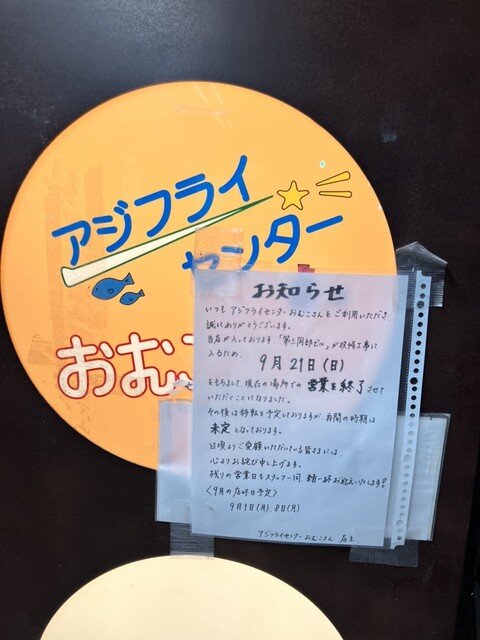 アジフライ
センター
おむこ
お知らせ
いつも アジフライセンターおむこさんを ご利用いただき
誠にありがとうございます。
当店が入っております、「第三岡部ビル」が改修工事に
入るため、
9月21日(日)
をもちまして、現在の場所での 営業を終了させて
いただくことになりました。
その後は移転を予定しておりますが、再開の時期は
未定となっております。
日頃よりご愛顧いただいている皆さまには、
心よりお詫び申し上げます。
残りの営業日もスタッフ一同、精一杯お迎えいたします!
〈9月の店休日予定〉
9月1日(月)、8日(月)
アジフライセンター おむこさん 店主